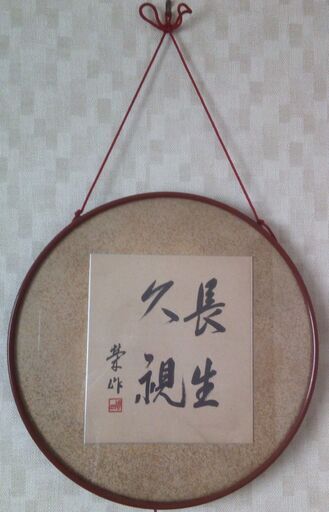 長生
久視
榮作